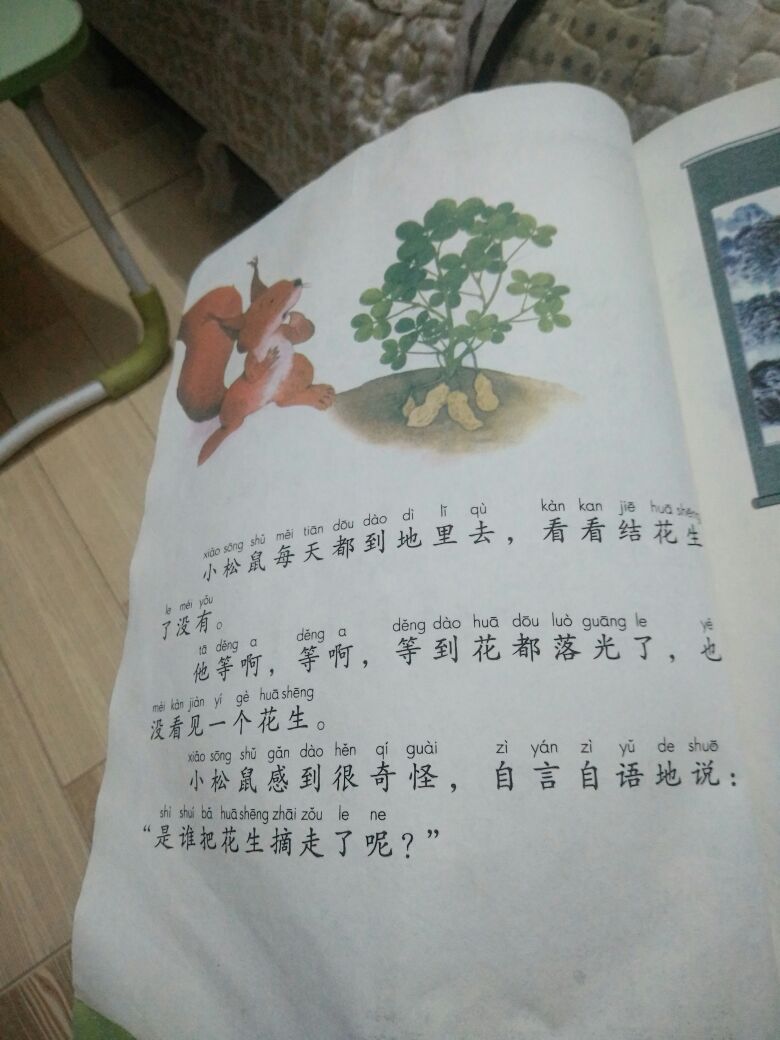 xiǎo sōng shǔ měi tiān dōu dào dì lǐ qù kàn kan jiē huā shēng
小松鼠每天都到地里去，看看结花生
le méi yǒu
了没有。
tā děng a děng a děng dào huā dōu luò guāng le yě
他等啊，等啊，等到花都落光了，也
méi kàn jiàn yí gè huā shēng
没看见一个花生。
xiǎo sōng shǔ gǎn dào hěn qí guài zì yán zì yǔ de shuō
小松鼠感到很奇怪，自言自语地说：
shì shuí bǎ huā shēng zhāi zǒu le ne
“是谁把花生摘走了呢？”